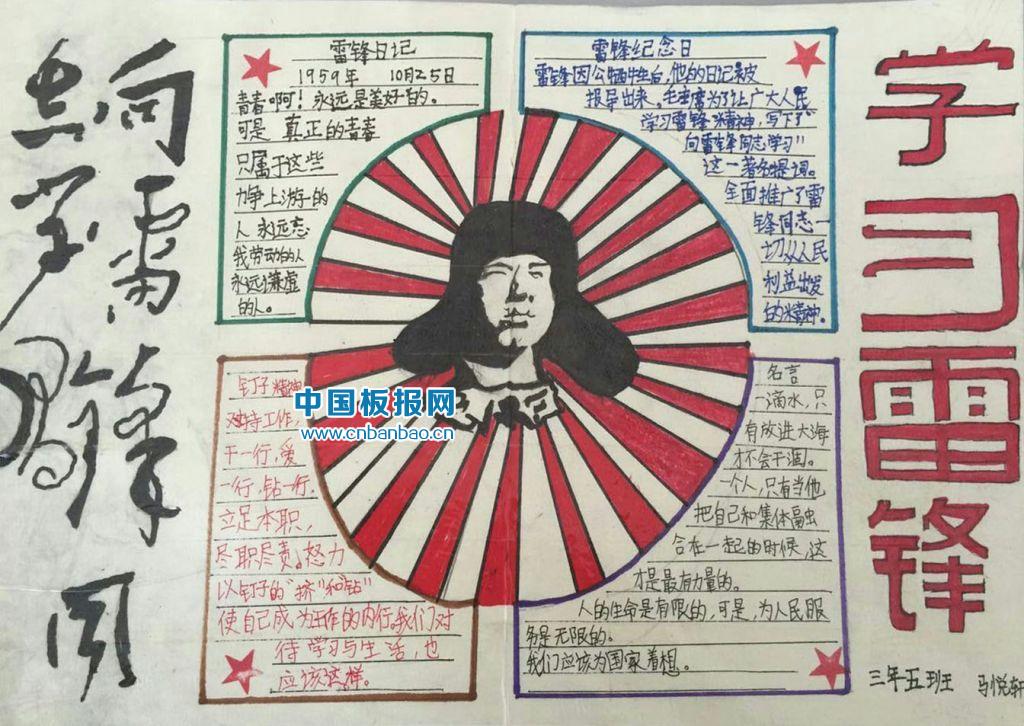 向雷锋同
志学习
雷锋日记
1959年 10月25日
青春啊！永远是美好的。
可是 真正的青春
只属于这些
力争上游的
人 永远忘
我劳动的人
永远谦虚
的人。
雷锋纪念日
雷锋因公牺牲后，他的日记被
报导出来。毛主席为了让广大人民
学习雷锋精神，写下了“
向雷锋同志学习”
这一著名提词。
全面推广了雷
锋同志一
切从人民
利益出发
的精神。
钉子精神
对待工作，
干一行，爱
一行，钻一行。
立足本职，
尽职尽责。怒力
以钉子的“挤”和“钻”
使自己成为工作的内行。我们对
待 学习与生活，也
应该这样。
名言
一滴水，只
有放进大海
才不会干涸。
一个人，只有当他
把自己和集体融
合在一起的时候，这
才是最有力量的。
人的生命是有限的，可是，为人民服
务是无限的。
我们应该为国家着想。
学习雷锋
三年五班 马悦轩
中国板报网
www.cnbanbao.cn